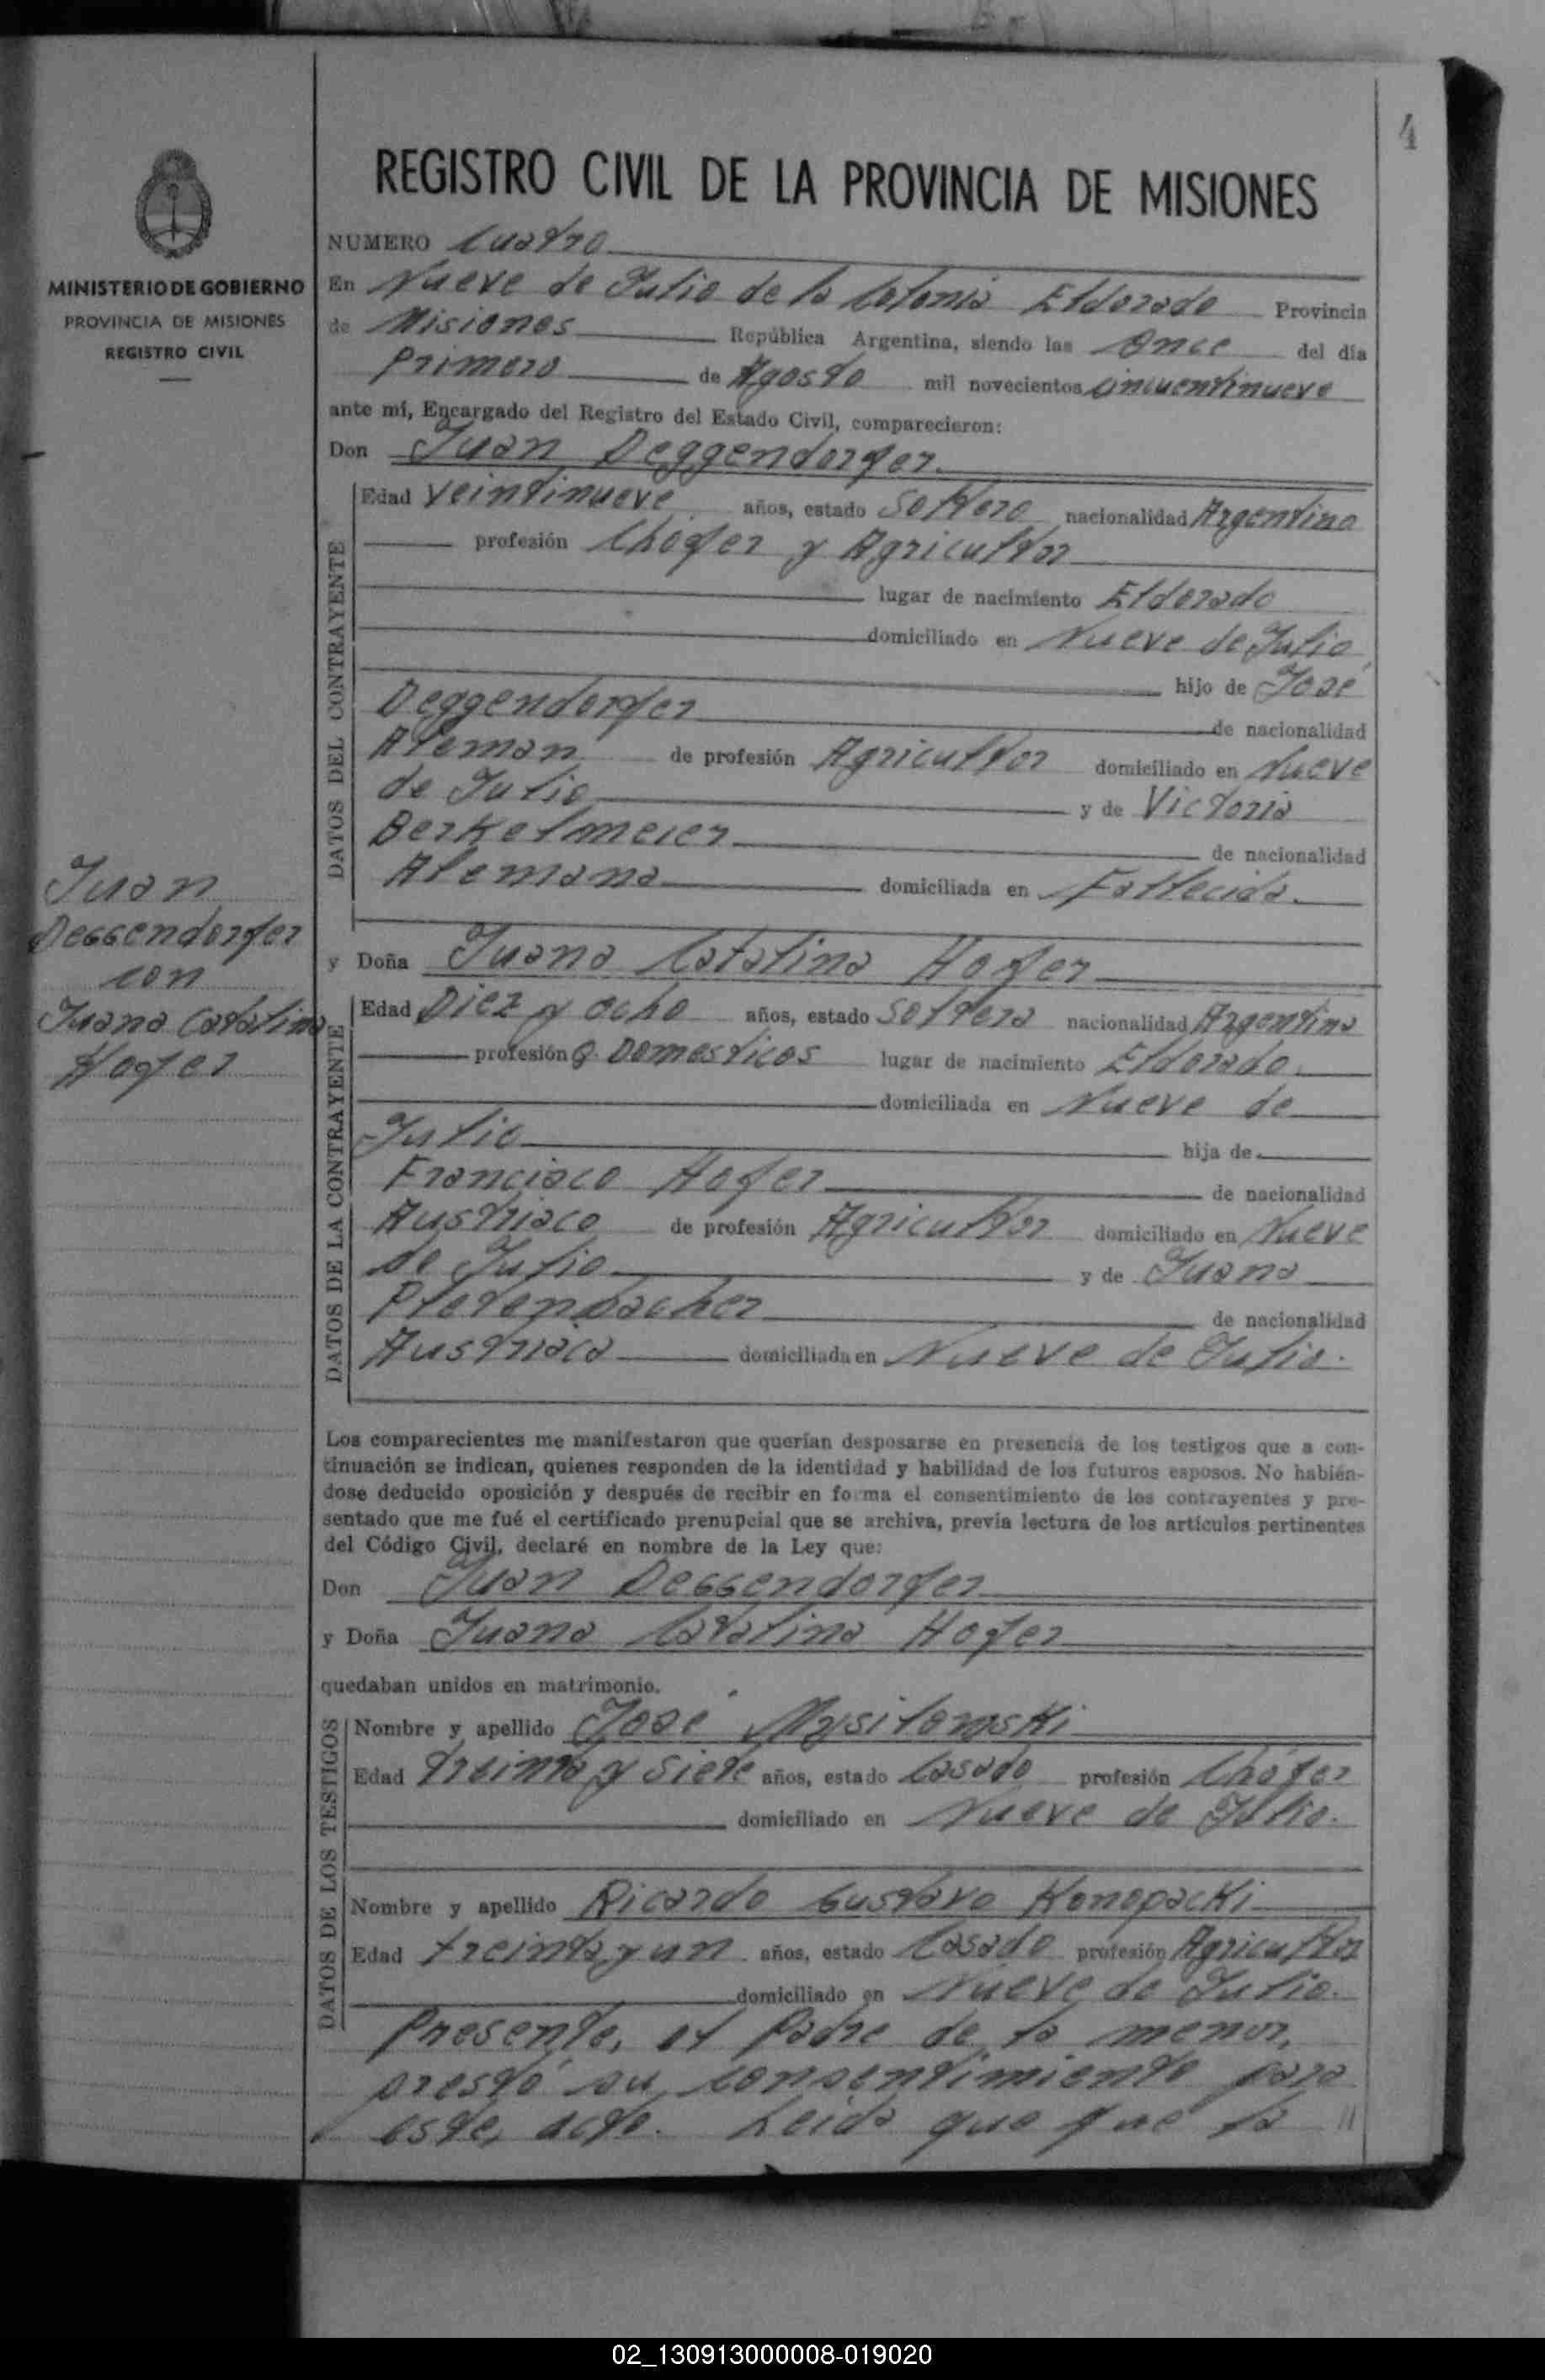 4
REGISTRO CIVIL DE LA PROVINCIA DE MISIONES
MINISTERIO DE GOBIERNO
PROVINCIA DE MISIONES
REGISTRO CIVIL
NUMERO Cuatro
En Nueve de Julio de la Colonia Eldorado Provincia
de Misiones República Argentina, siendo las Once del día
Primero de Agosto mil novecientos cincuentinueve
ante mí, Encargado del Registro del Estado Civil, comparecieron:
Don Juan Deggendorfer
DATOS DEL CONTRAYENTE
Edad Veintinueve años, estado Soltero nacionalidad Argentino
profesión Chofer y Agricultor
lugar de nacimiento Eldorado
domiciliado en Nueve de Julio
hijo de José
Deggendorfer de nacionalidad
Aleman de profesión Agricultor domiciliado en Nueve
de Julio y de Victoria
Berkelmeier de nacionalidad
Alemana domiciliada en Fallecida.
Juan
Deggendorfer
con
Juana Catalina
Hofer
y Doña Juana Catalina Hofer
DATOS DE LA CONTRAYENTE
Edad Diez y ocho años, estado Soltera nacionalidad Argentina
profesión Q. Domesticos lugar de nacimiento Eldorado.
domiciliada en Nueve de
Julio hija de
Francisco Hofer de nacionalidad
Austriaco de profesión Agricultor domiciliado en Nueve
de Julio y de Juana
de nacionalidad
Austriaca domiciliada en Nueve de Julio.
Los comparecientes me manifestaron que querían desposarse en presencia de los testigos que a con-
tinuación se indican, quienes responden de la identidad y habilidad de los futuros esposos. No habién-
dose deducido oposición y después de recibir en forma el consentimiento de los contrayentes y pre-
sentado que me fué el certificado prenupcial que se archiva, previa lectura de los artículos pertinentes
del Código Civil, declaré en nombre de la Ley que:
Don Juan Deggendorfer
y Doña Juana Catalina Hofer
quedaban unidos en matrimonio.
DATOS DE LOS TESTIGOS
Nombre y apellido José
Edad treinta y siete años, estado Casado profesión Chófer
domiciliado en Nueve de Julio.
Nombre y apellido Ricardo Gustavo Konopacki
Edad treinta y un años, estado Casado profesión Agricultor
domiciliado en Nueve de Julio.
Presente, el Padre de la menor,
prestó su consentimiento para
este, acto. Leida que fue la //
02_130913000008-019020